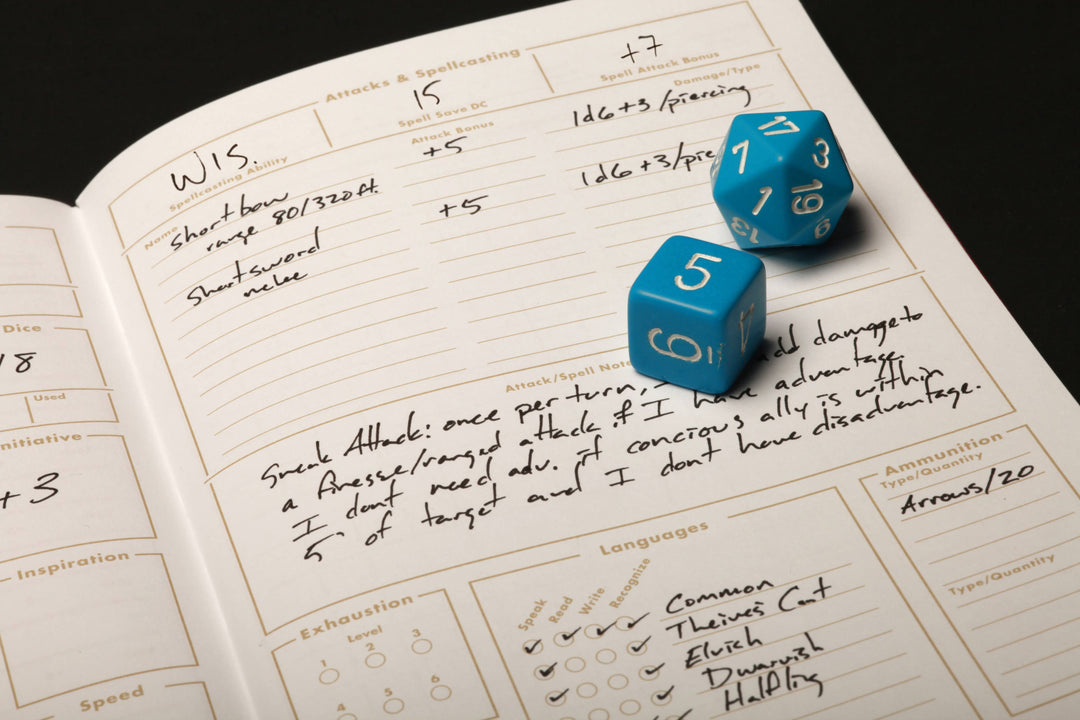 Attacks & Spellcasting
WIS.
Spellcasting Ability
15
Spell Save DC
+7
Spell Attack Bonus
Name
Attack Bonus
Damage/Type
Shortbow
range 80/320ft.
+5
1d6+3/piercing
Shortsword
melee
+5
1d6+3/pie
17
7
3
1
19
13
9
5
6
Attack/Spell Note
Sneak Attack: once per turn, add damage to
a finesse/ranged attack if I have advantage.
I dont need adv. if concious ally is within
5' of target and I dont have disadvantage.
Dice
18
Used
nitiative
+3
Inspiration
Speed
Exhaustion
Level
1 2 3
4 5 6
Languages
Speak Read Write Recognize
Common
Theives Cant
Elvish
Dwarvish
Halfling
Ammunition
Type/Quantity
Arrows/20
Type/Quantity